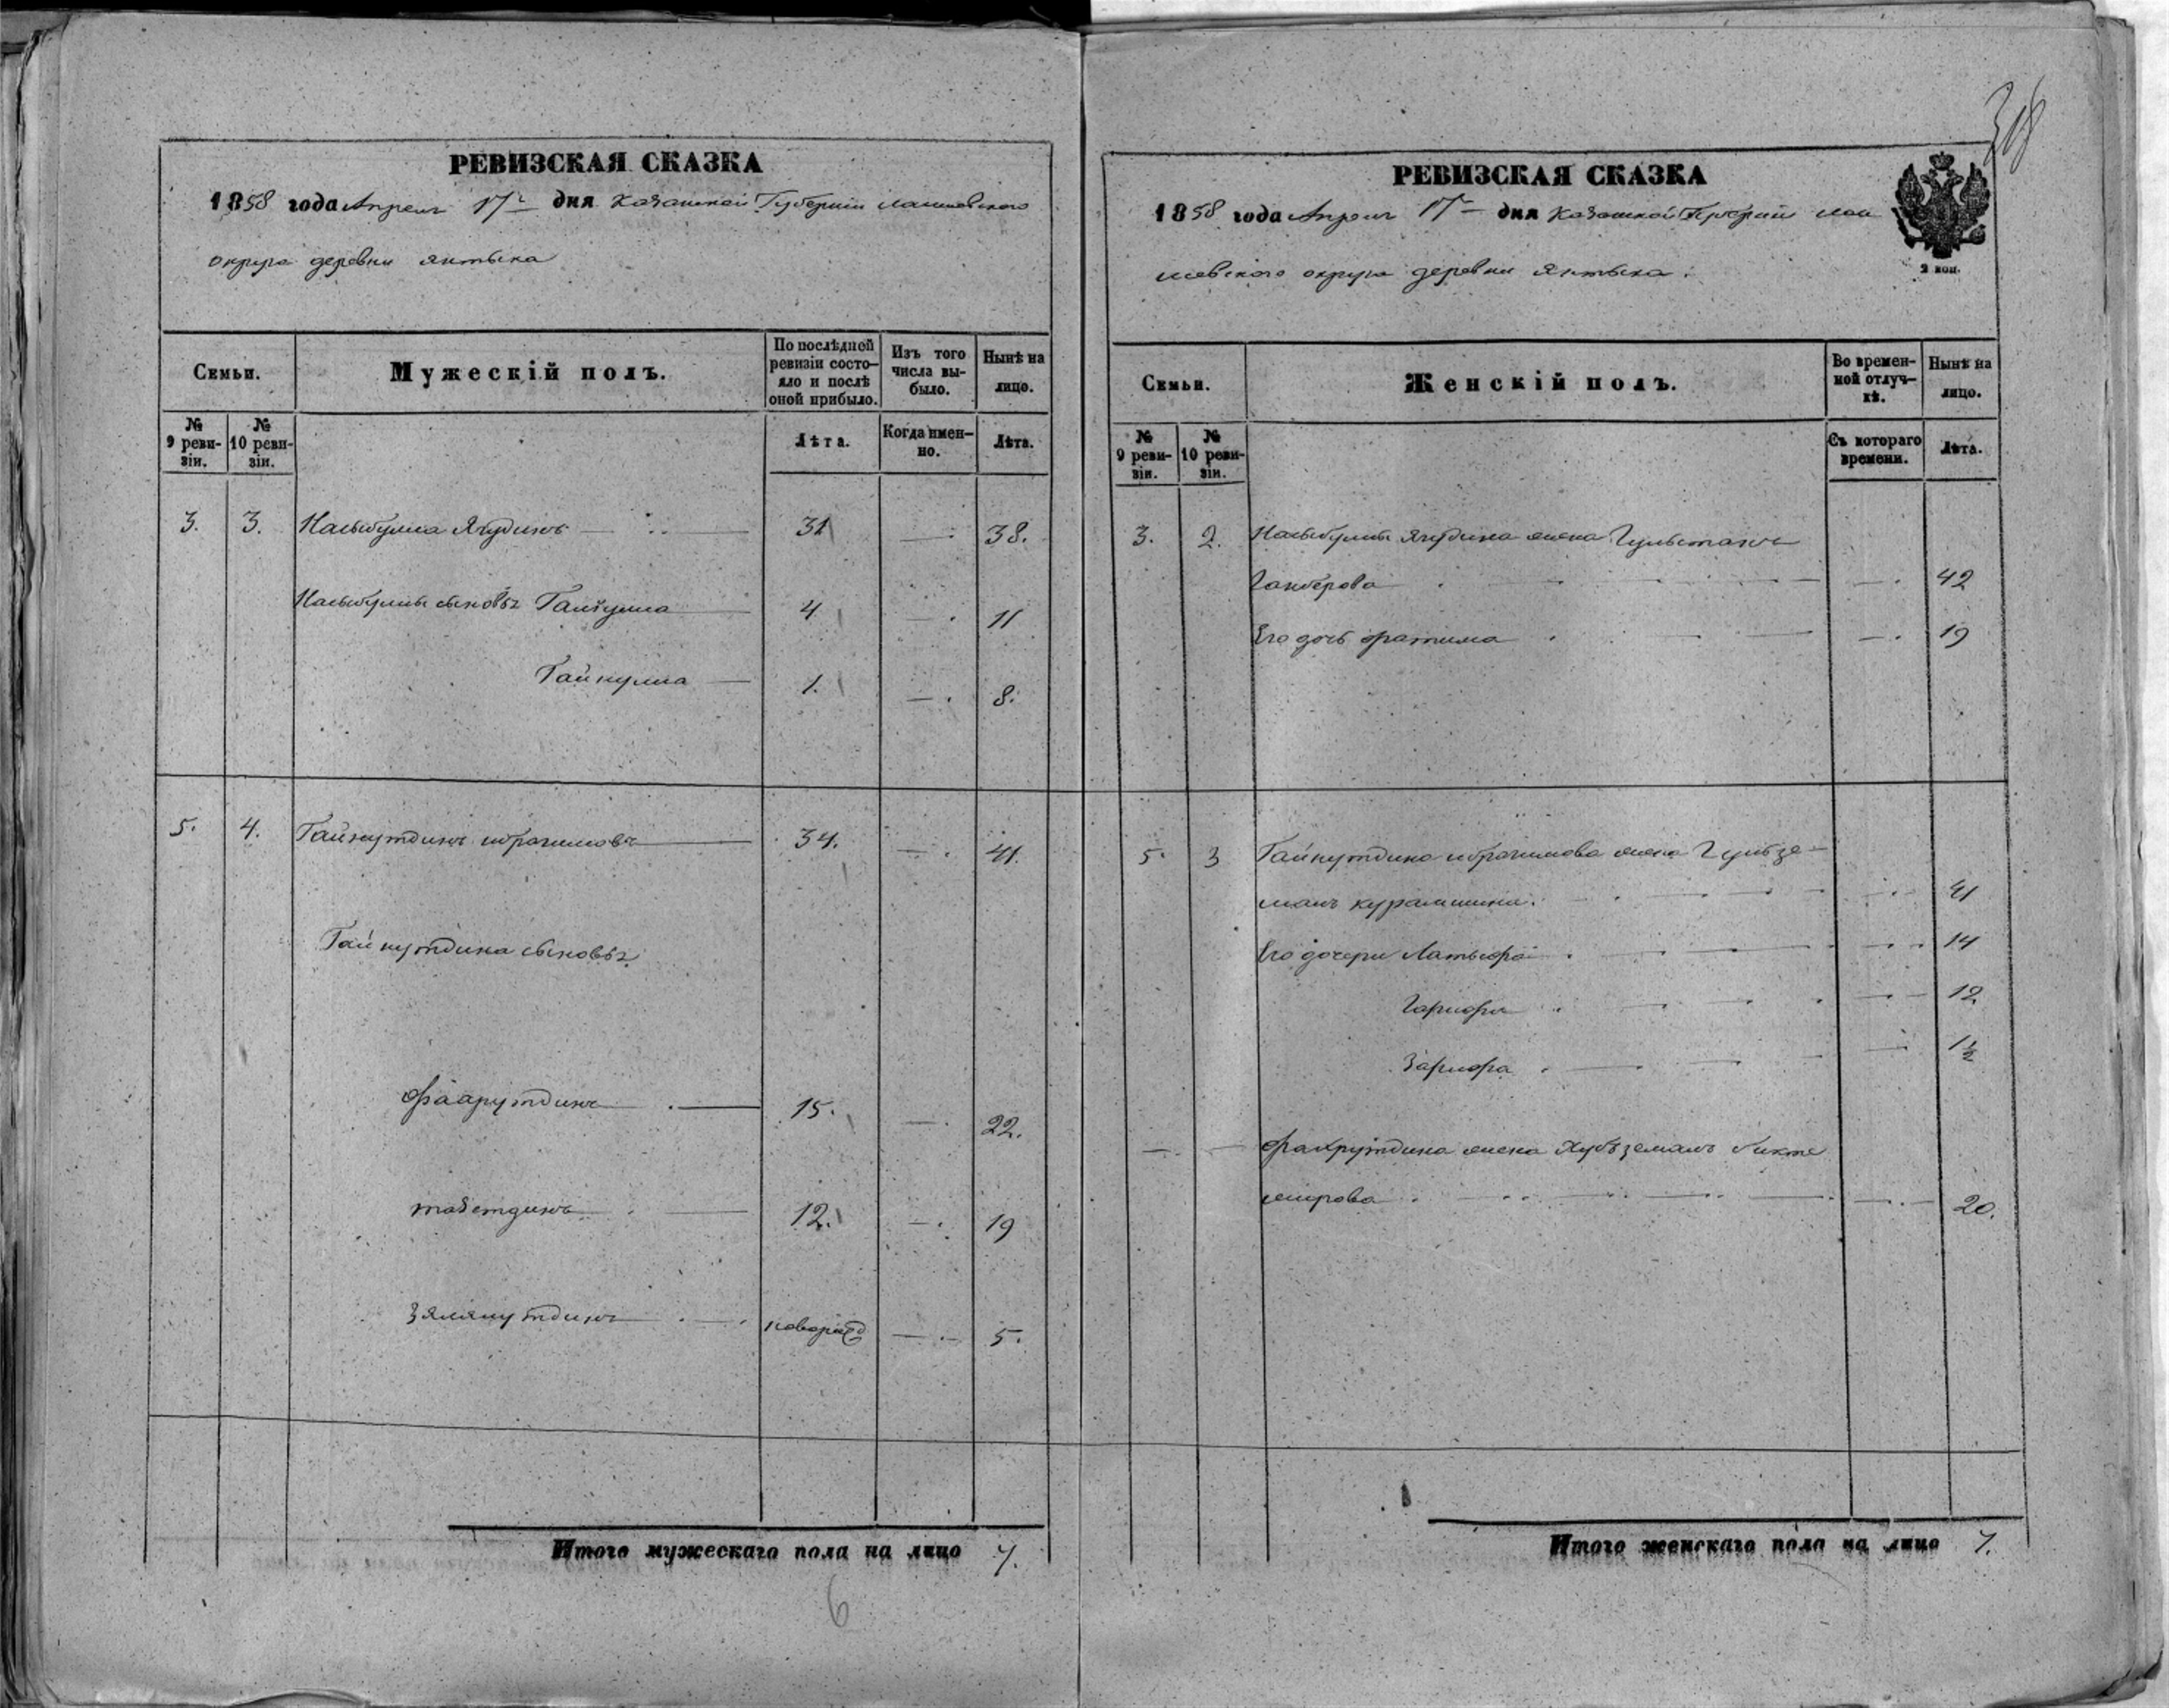 318
РЕВИЗСКАЯ СКАЗКА
1858 года Апреля 17го дня Казанской Губернии Лаишевского
округа деревни Янтыка
Семьи.
Мужескій полъ.
По послѣдней ревизіи состояло и послѣ оной прибыло.
Изъ того числа выбыло.
Нынѣ на лицо.
№ 9 ревизіи.
№ 10 ревизіи.
Лѣта.
Когда именно.
Лѣта.
3. 3. Насыбулла Ягудинъ 31 — 38.
Насыбуллы сыновья Галиулла 4 — 11
Гайнулла 1. — 8.
5. 4. Гайнутдинъ ибрагимовъ 34. — 41.
Гайнутдина сыновья
15. — 22.
12. — 19
новорожд — 5.
Итого мужескаго пола на лицо 7.
6
РЕВИЗСКАЯ СКАЗКА
1858 года Апреля 17 дня Казанской Губернии Лаи
шевского округа деревни Янтыка.
2 коп.
Семьи.
Женскій полъ.
Во временной отлучкѣ.
Нынѣ на лицо.
№ 9 ревизіи.
№ 10 ревизіи.
Съ котораго времени.
Лѣта.
3. 2. Насыбуллы Ягудина жена Гульстанъ
— 42
Его дочь Фатима — 19
5. 3 Гайнутдина ибрагимова жена Гульзе-
манъ курамшина. — 41
Его дочери Латыфа — 14
12.
Зарифа — 1½
— — Фахрутдина жена Хубземанъ бикте
мирова — 20.
Итого женскаго пола на лицо 7.